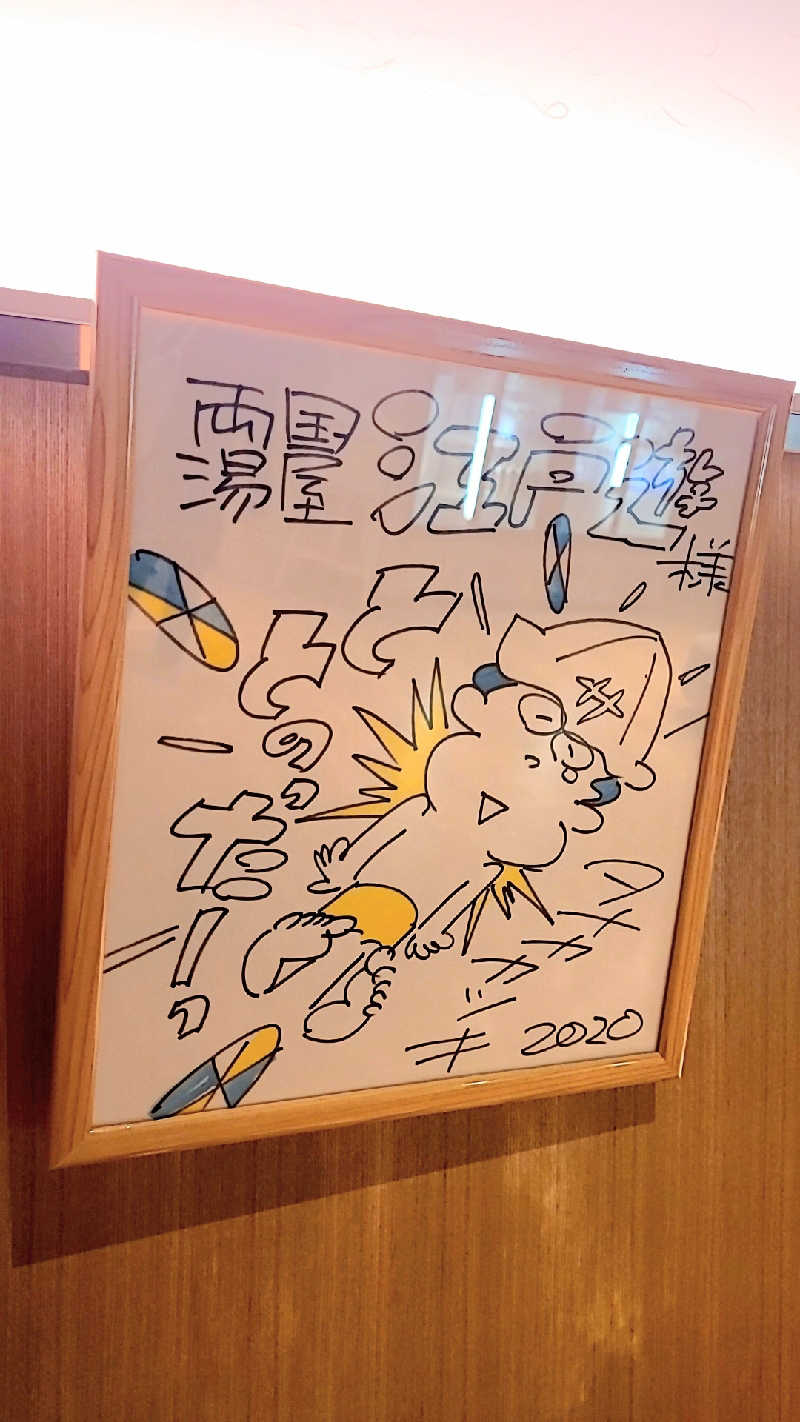 両国
湯屋
江戸遊
様
ととのった！
タナカカツキ
2020